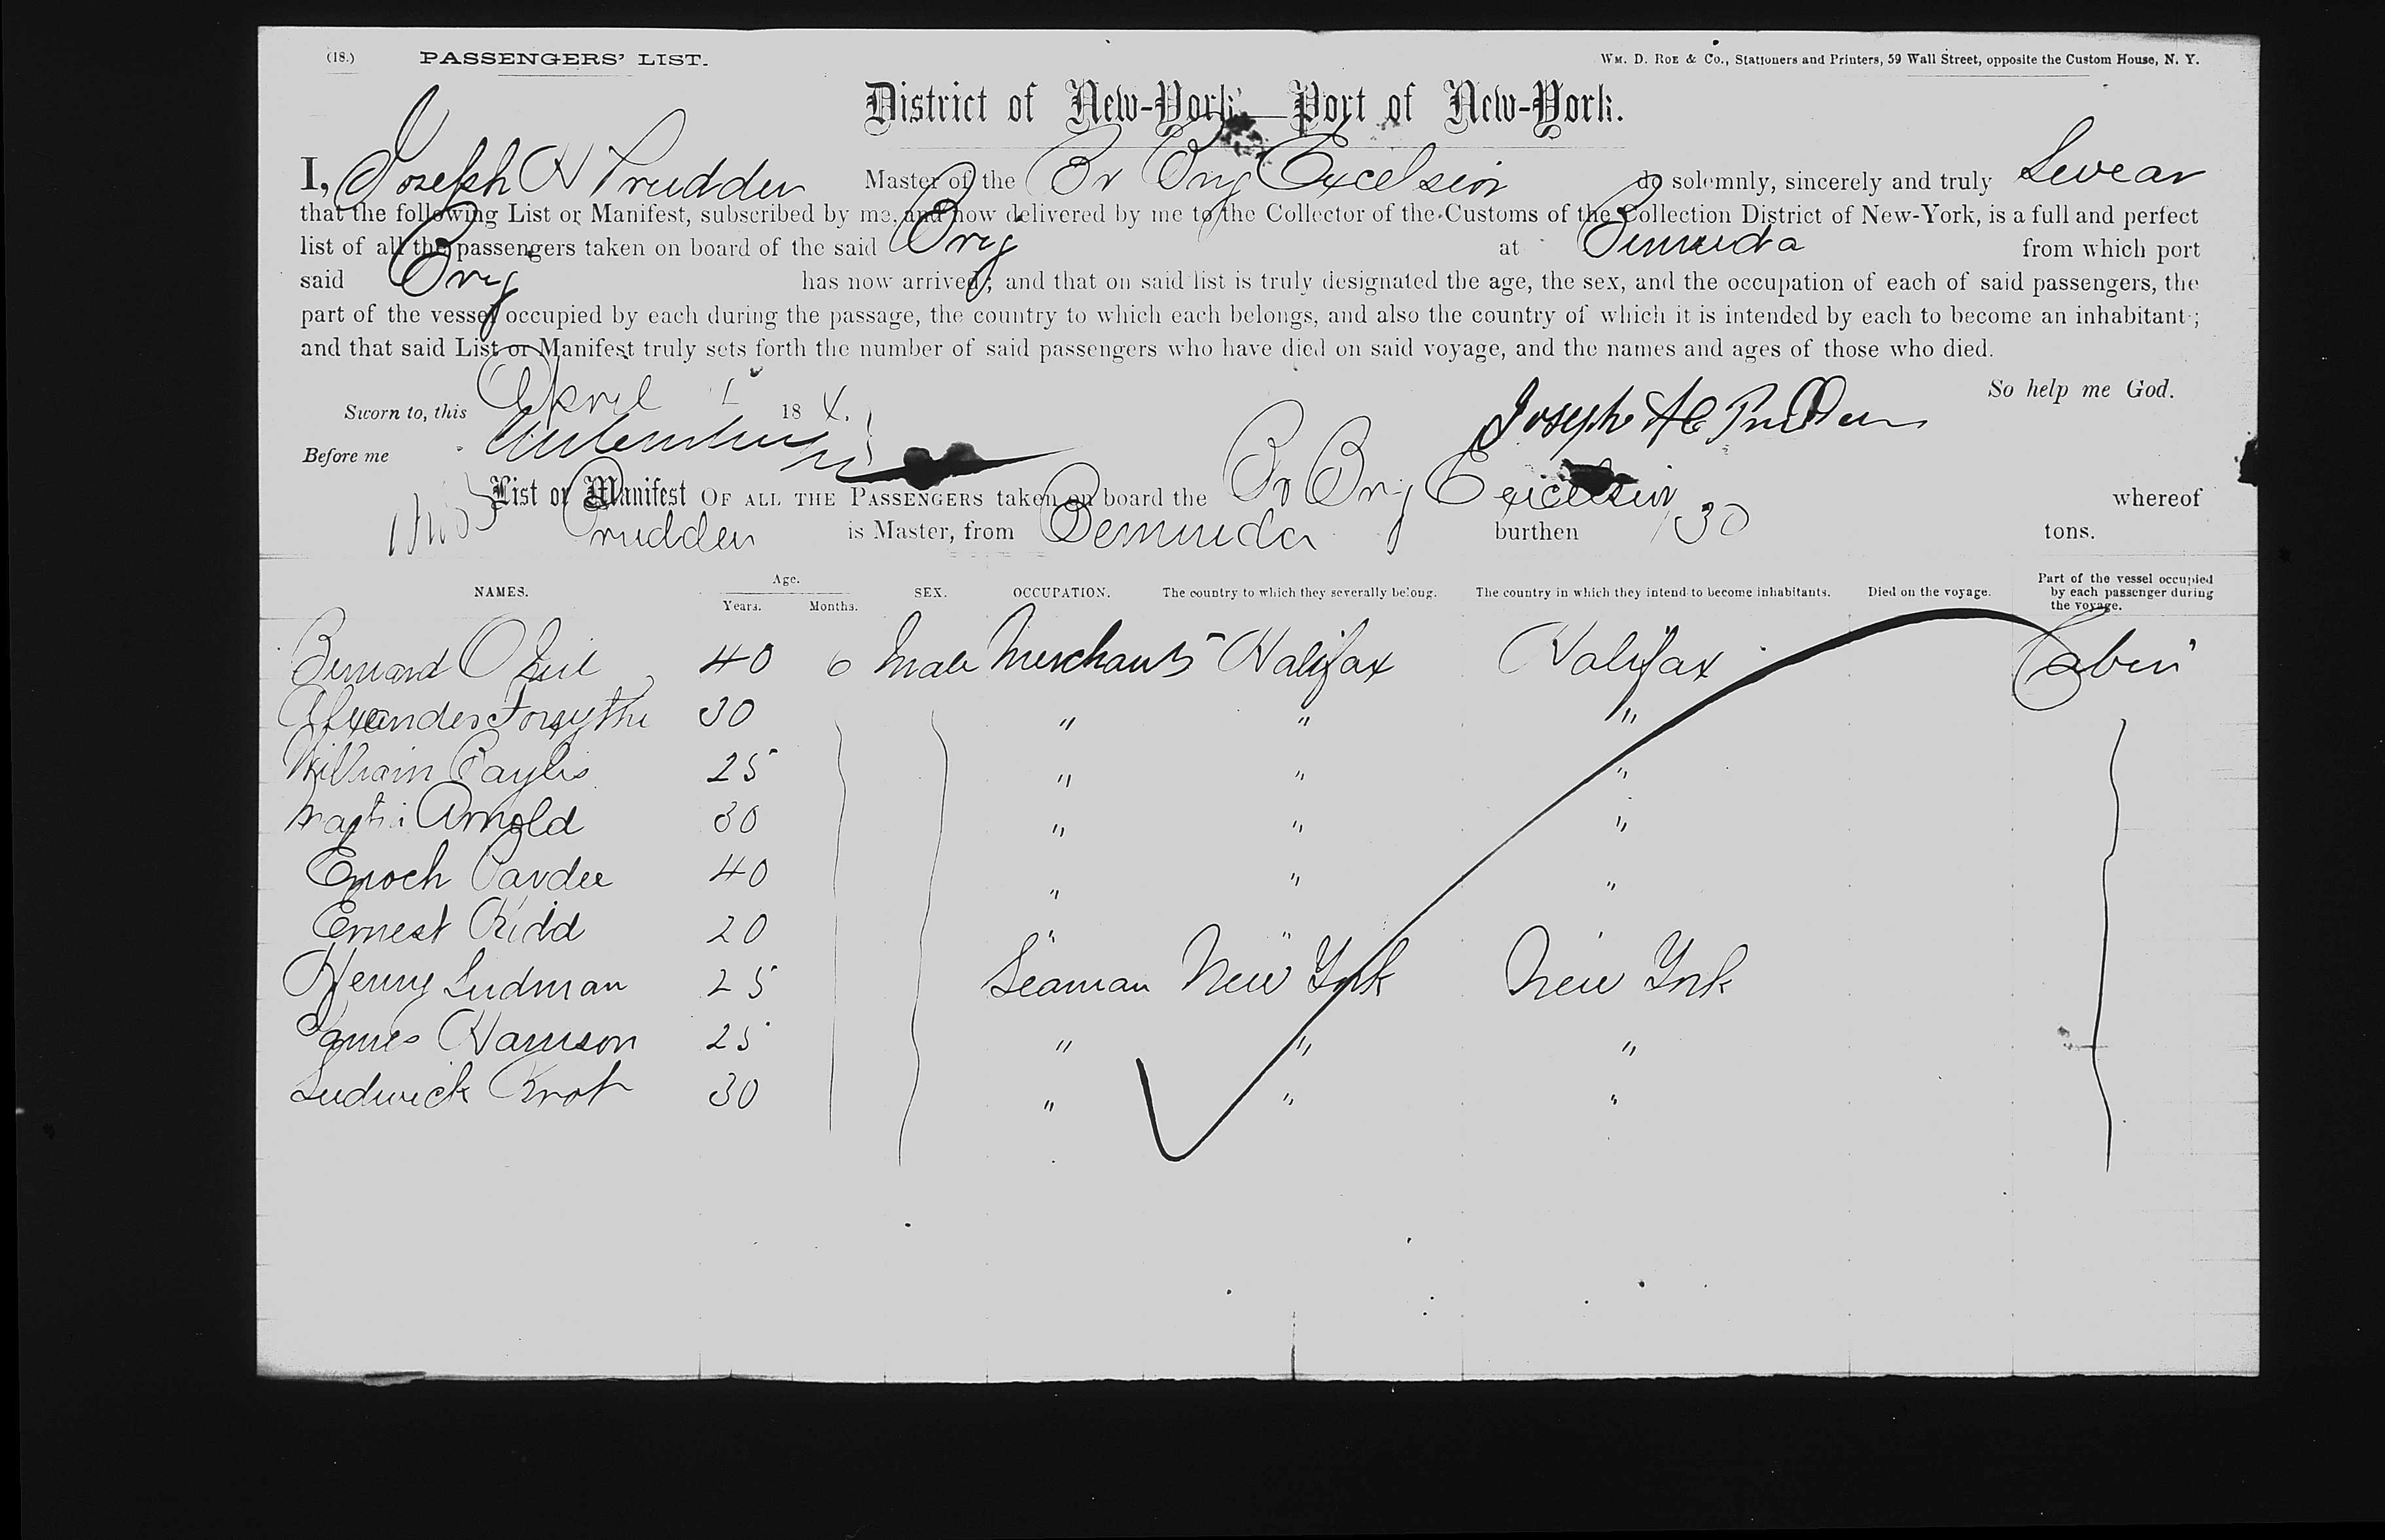 (18.) PASSENGERS' LIST. Wm. D. Roe & Co., Stationers and Printers, 59 Wall Street, opposite the Custom House, N. Y.
District of New-York—Port of New-York.
I, Joseph H Prudden Master of the Br Brig Excelsior do solemnly, sincerely and truly Swear
that the following List or Manifest, subscribed by me, and now delivered by me to the Collector of the Customs of the Collection District of New-York, is a full and perfect
list of all the passengers taken on board of the said Brig at Bermuda from which port
said Brig has now arrived; and that on said list is truly designated the age, the sex, and the occupation of each of said passengers, the
part of the vessel occupied by each during the passage, the country to which each belongs, and also the country of which it is intended by each to become an inhabitant;
and that said List or Manifest truly sets forth the number of said passengers who have died on said voyage, and the names and ages of those who died.
So help me God.
Sworn to, this April 1 18
Joseph H Prudden
Before me
List or Manifest OF ALL THE PASSENGERS taken on board the Br Brig Excelsior whereof
Prudden is Master, from Bermuda burthen 130 tons.
NAMES. Age. Years. Months. SEX. OCCUPATION. The country to which they severally belong. The country in which they intend to become inhabitants. Died on the voyage. Part of the vessel occupied by each passenger during the voyage.
Bernard O Neil 40 6 Male Merchants Halifax Halifax Cabin
Alexander Forsythe 30 " " "
William Baylis 25 " " "
Arnold 30 " " "
Enoch Pardee 40 " " "
Ernest Kidd 20 " "
Henry Ludman 25 Seaman New York New York
James Harrison 25 " " "
Ludwick Knot 30 " " "